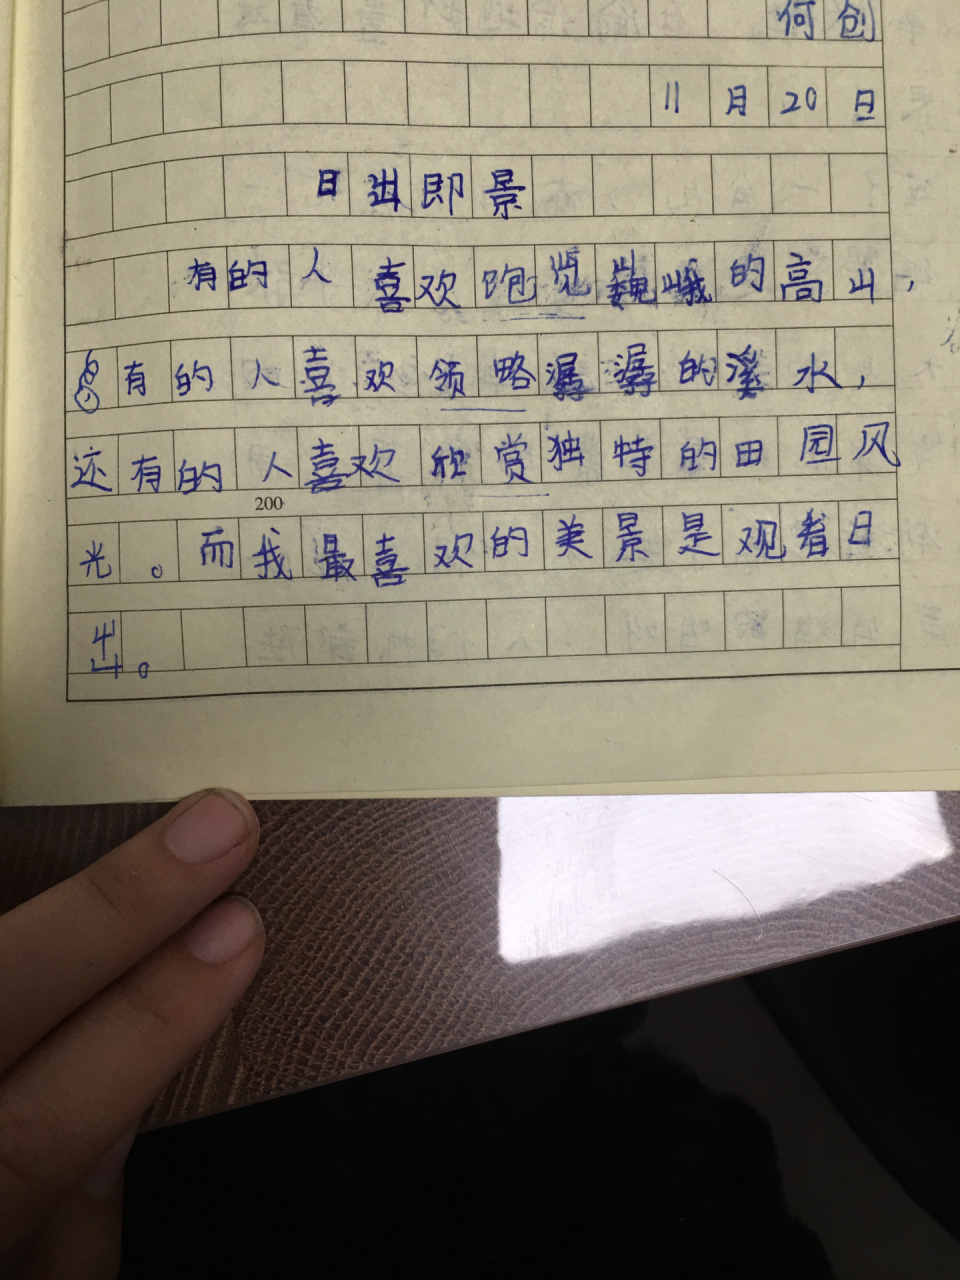 何创
11月20日
日出即景
有的人喜欢饱览巍峨的高山,
有的人喜欢领略潺潺的溪水,
还有的人喜欢欣赏独特的田园风
200
光。而我最喜欢的美景是观看日
出。